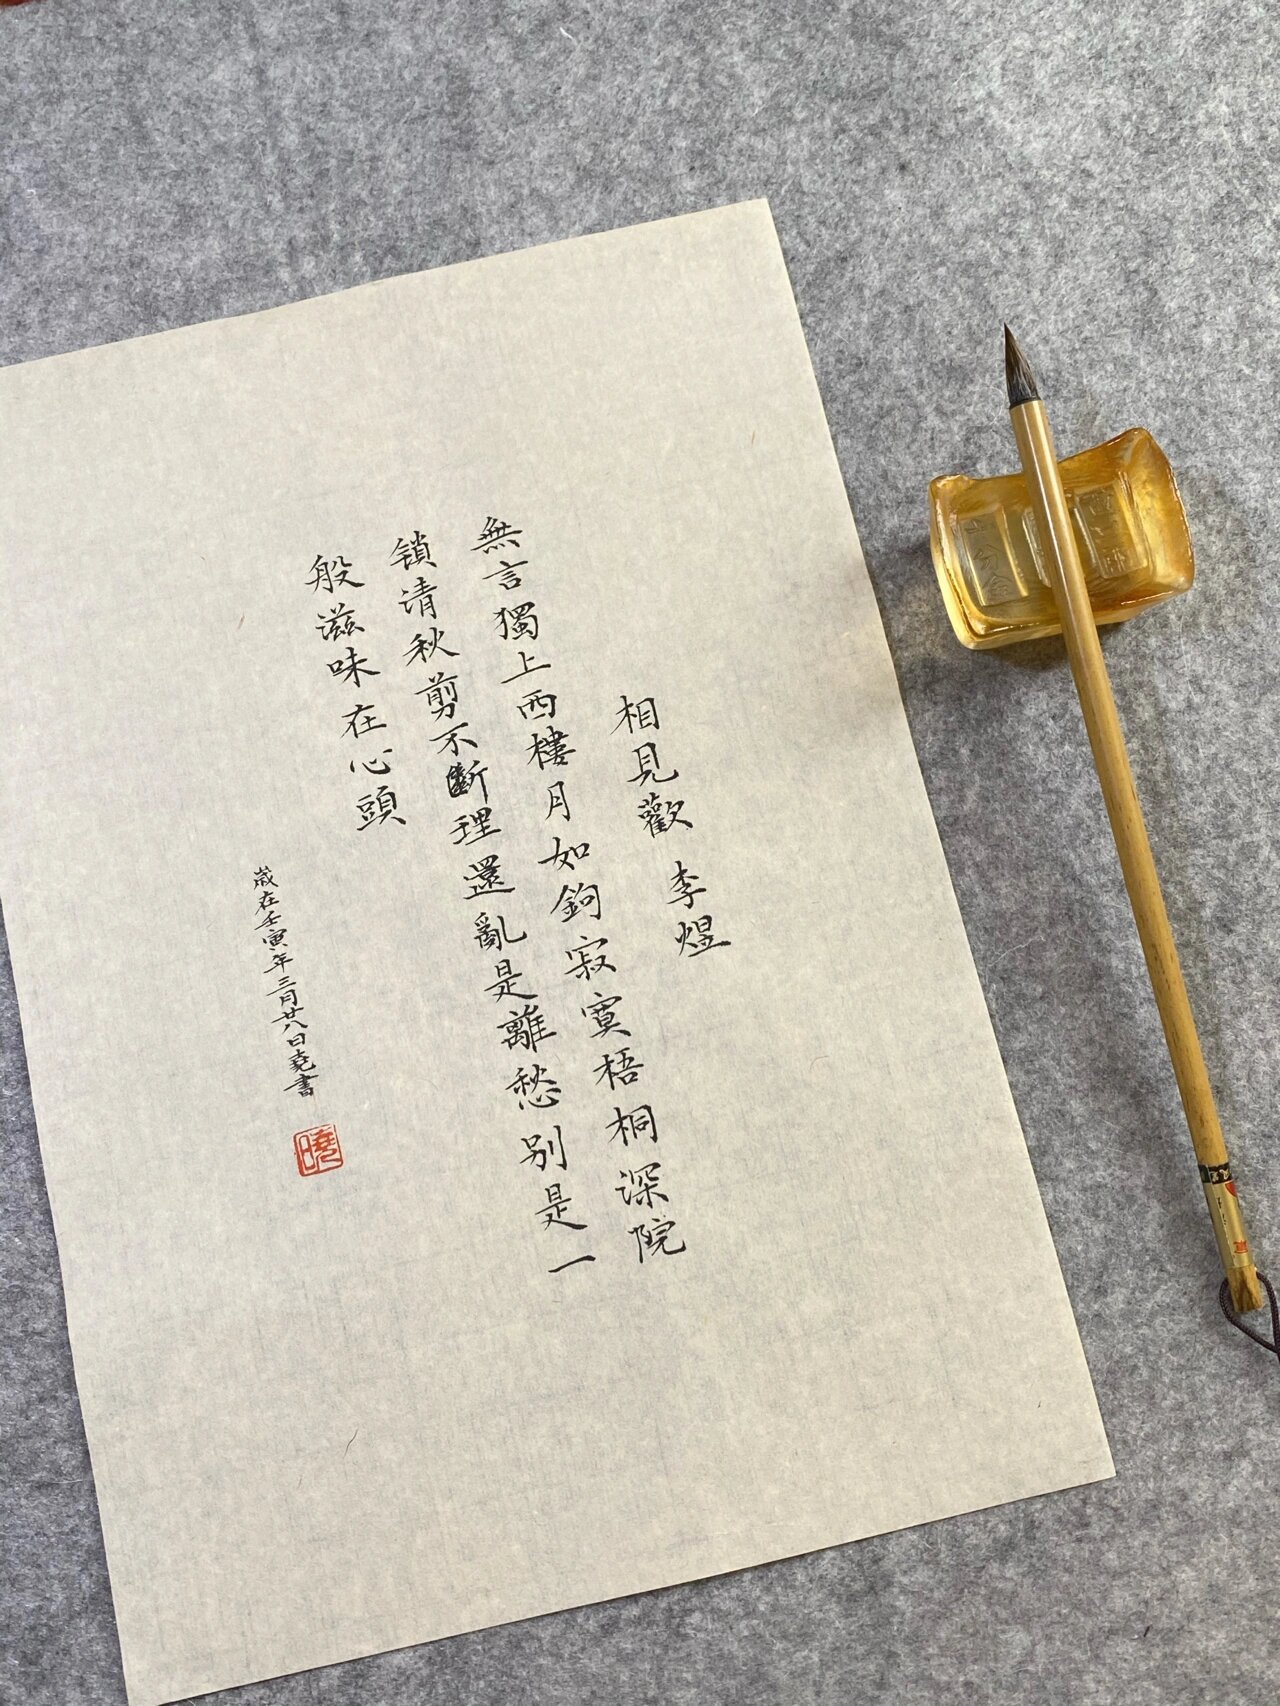 相見歡 李煜
無言獨上西樓月如鉤寂寞梧桐深院
锁清秋剪不斷理還亂是離愁别是一
般滋味在心頭
歲在壬寅年三月廿八日堯書
曉